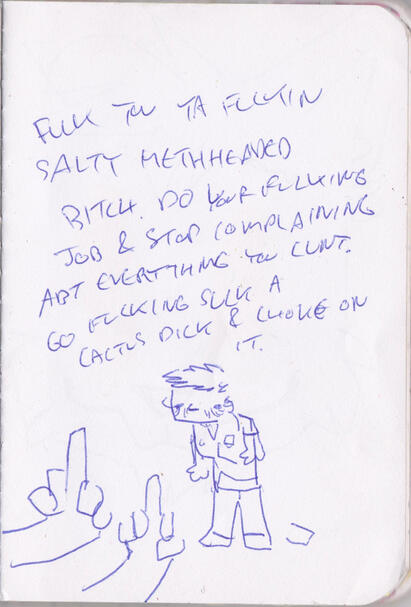 FUCK YOU YA FUCKIN
SALTY METHHEADED
BITCH. DO YOUR FUCKING
JOB & STOP COMPLAINING
ABT EVERYTHING YOU CUNT.
GO FUCKING SUCK A
CACTUS DICK & CHOKE ON
IT.